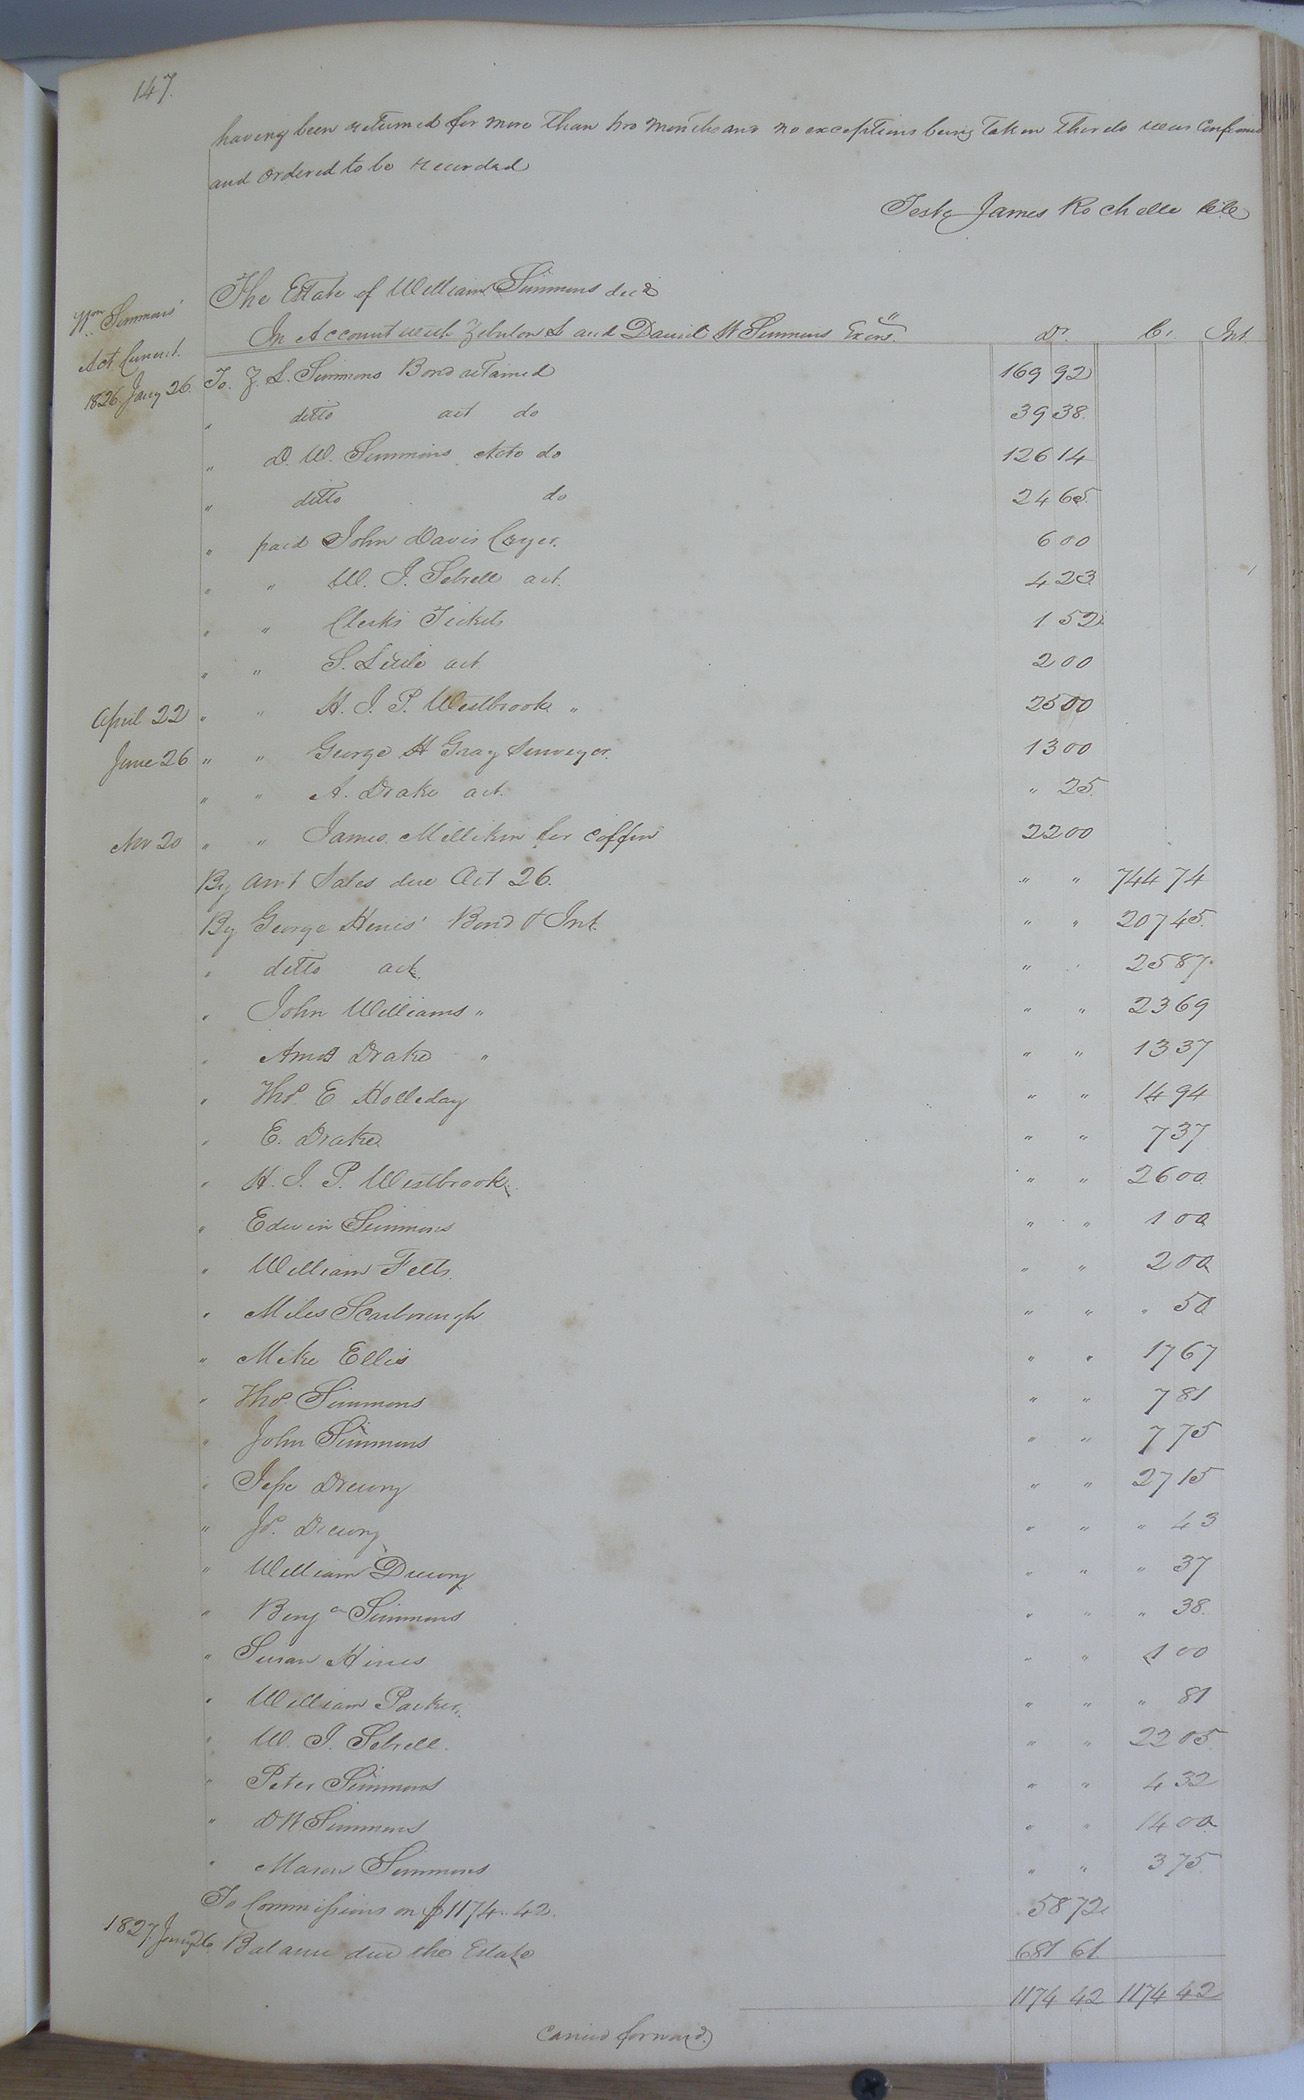 147.
having been returned for more than two months and no exceptions being taken thereto was confirmed
and ordered to be recorded
Teste James Rochelle Clk
The Estate of William Simmons decd
In Account with Zebulon S and Daniel W Simmons Exors. Dr. Cr. Int.
Wm. Simmons'
Act. Current.
1826 Jany 26. To. Z. S. Simmons Bond retained 169 92
" ditto act do 39 38.
" D. W. Simmons Acto do 126 14
" ditto do 24 65.
" paid John Davis Cryer. 6 00
" " W. J. Sebrell act. 4 23
" " Clerks Tickets 1 52
" " S. act 2 00
April 22 " " H. J. P. Westbrook " 25 00
June 26 " " George H Gray Surveyor. 13 00
" " A. Drake act. " 25.
Nov 20 " " James Millikin for Coffin 22 00
By amt Sales due Oct 26. " " 744 74
By George Hines' Bond & Int. " " 207 45.
" ditto act. " " 25 87.
" John Williams " " " 23 69
" Amos Drake " " " 13 37
" Thos. E Holleday " " 14 94
" E. Drake " " 7 37
" H. J. P. Westbrook " " 26 00
" Edwin Simmons " " 1 00
" William Felts. " " 2 00
" Miles Scarborough " " " 50
" Mike Ellis " " 17 67
" Thos Simmons " " 7 81
" John Simmons " " 7 75
" Jesse Drewry " " 27 15
" Js. Drewry " " " 43
" William Drewry " " " 37
" Benja Simmons " " " 38.
" Susan Hines " " 1 00
" William Parker. " " " 81
" W. J. Sebrell. " " 22 05.
" Peter Simmons " " 4 32
" D W Simmons " " 14 00
" Mason Simmons " " 3 75.
To Commissions on $1174..42. 58 72
1827. Jany 26 Balance due the Estate 681 61.
1174 42 1174 42
Carried forward.)